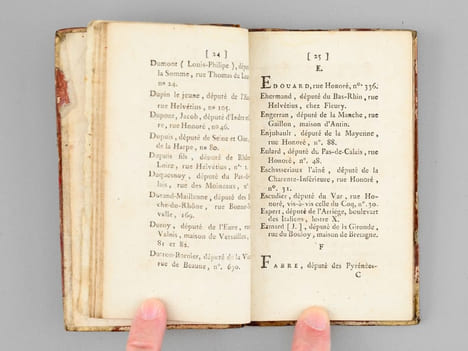 [ 24 ]
Dumont ( Louis-Philipe ), dépu
la Somme, rue Thomas du Lou
n° 24.
Dupin le jeune, député de l'Ai
rue Helvétius, n° 105.
Dupont, Jacob, député d'Indre
re, rue Honoré, n° 46.
Dupuis, député de Seine et Oise
de la Harpe, n° 80.
Dupuis fils, député de Rhône
Loire, rue Helvétius, n° 1
Duquesnoy, député du Pas-de
lais, rue des Moineaux, n°
Durand-Maillanne, député des
che-du-Rhône, rue Bonne-
velle, 169.
Duroy, député de l'Eure, ru
Valois, maison de Versailles,
81 et 82.
député de la Vie
rue de Beaune, n° 630.
[ 25 ]
E.
EDOUARD, rue Honoré, n°. 336.
Ehermand, député du Bas-Rhin, rue
Helvétius, chez Fleury.
Engerran, député de la Manche, rue
Gaillon, maison d'Antin.
Enjubault, député de la Mayenne,
rue Honoré, n°. 88.
Eulard, député du Pas-de-Calais, rue
Honoré, n°. 48.
Eschasseriaux l'aîné, député de la
Charente-Inférieure, rue Honoré,
n°. 31.
Escudier, député du Var, rue Ho-
noré, vis-à-vis celle du Coq, n°. 30.
Espert, député de l'Arriège, boulevart
des Italiens, lettre X.
[J.], député de la Gironde,
rue du Bouloy, maison de Bretagne.
F
FABRE, député des Pyrénées-
C